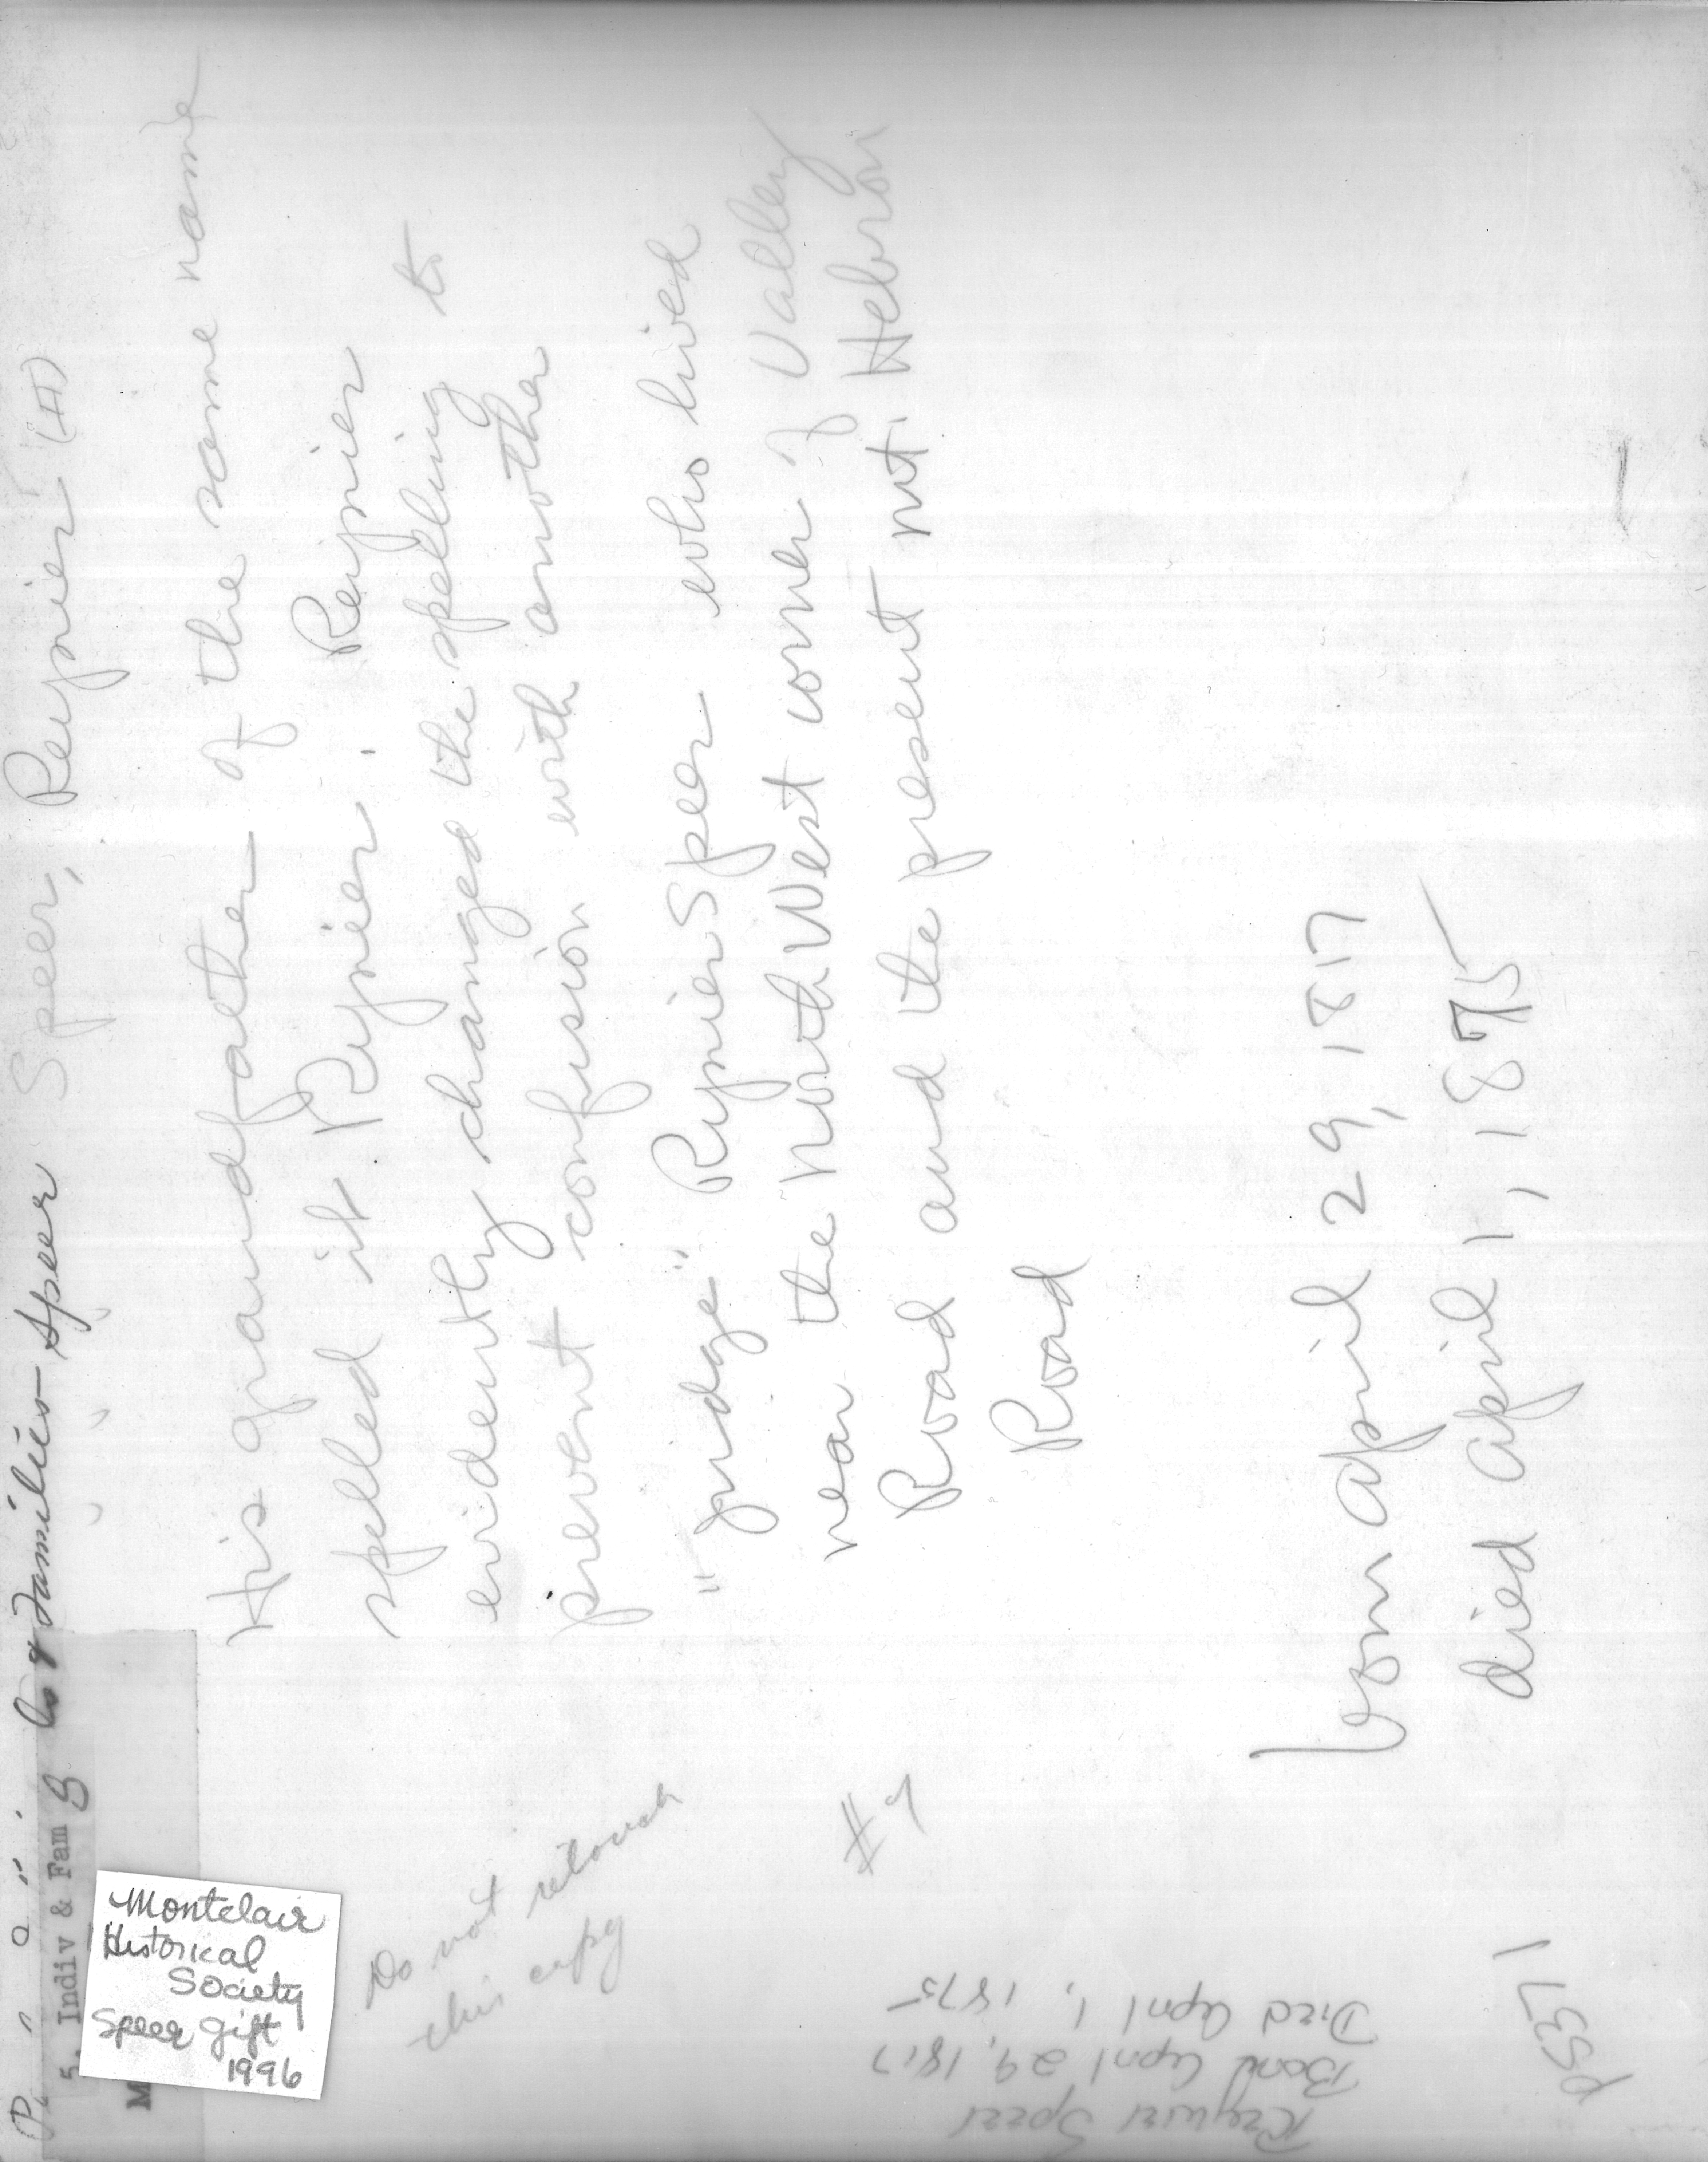 Indivs & Families - Speer
Speer, Reynier (H)
His grandfather of the same name
spelled it Rynier. Reynier
evidently changed the spelling to
prevent confusion with another
"judge" Rynier Speer who lived
near the North West corner of Valley
Road and the present Mt. Hebron
Road
born April 29, 1817
died April 1, 1875
5. Indiv & Fam S
Montclair
Historical
Society
Speer gift
1996
Do not retouch
this copy
Reynier Speer
Born April 29, 1817
Died April 1, 1875
P5371